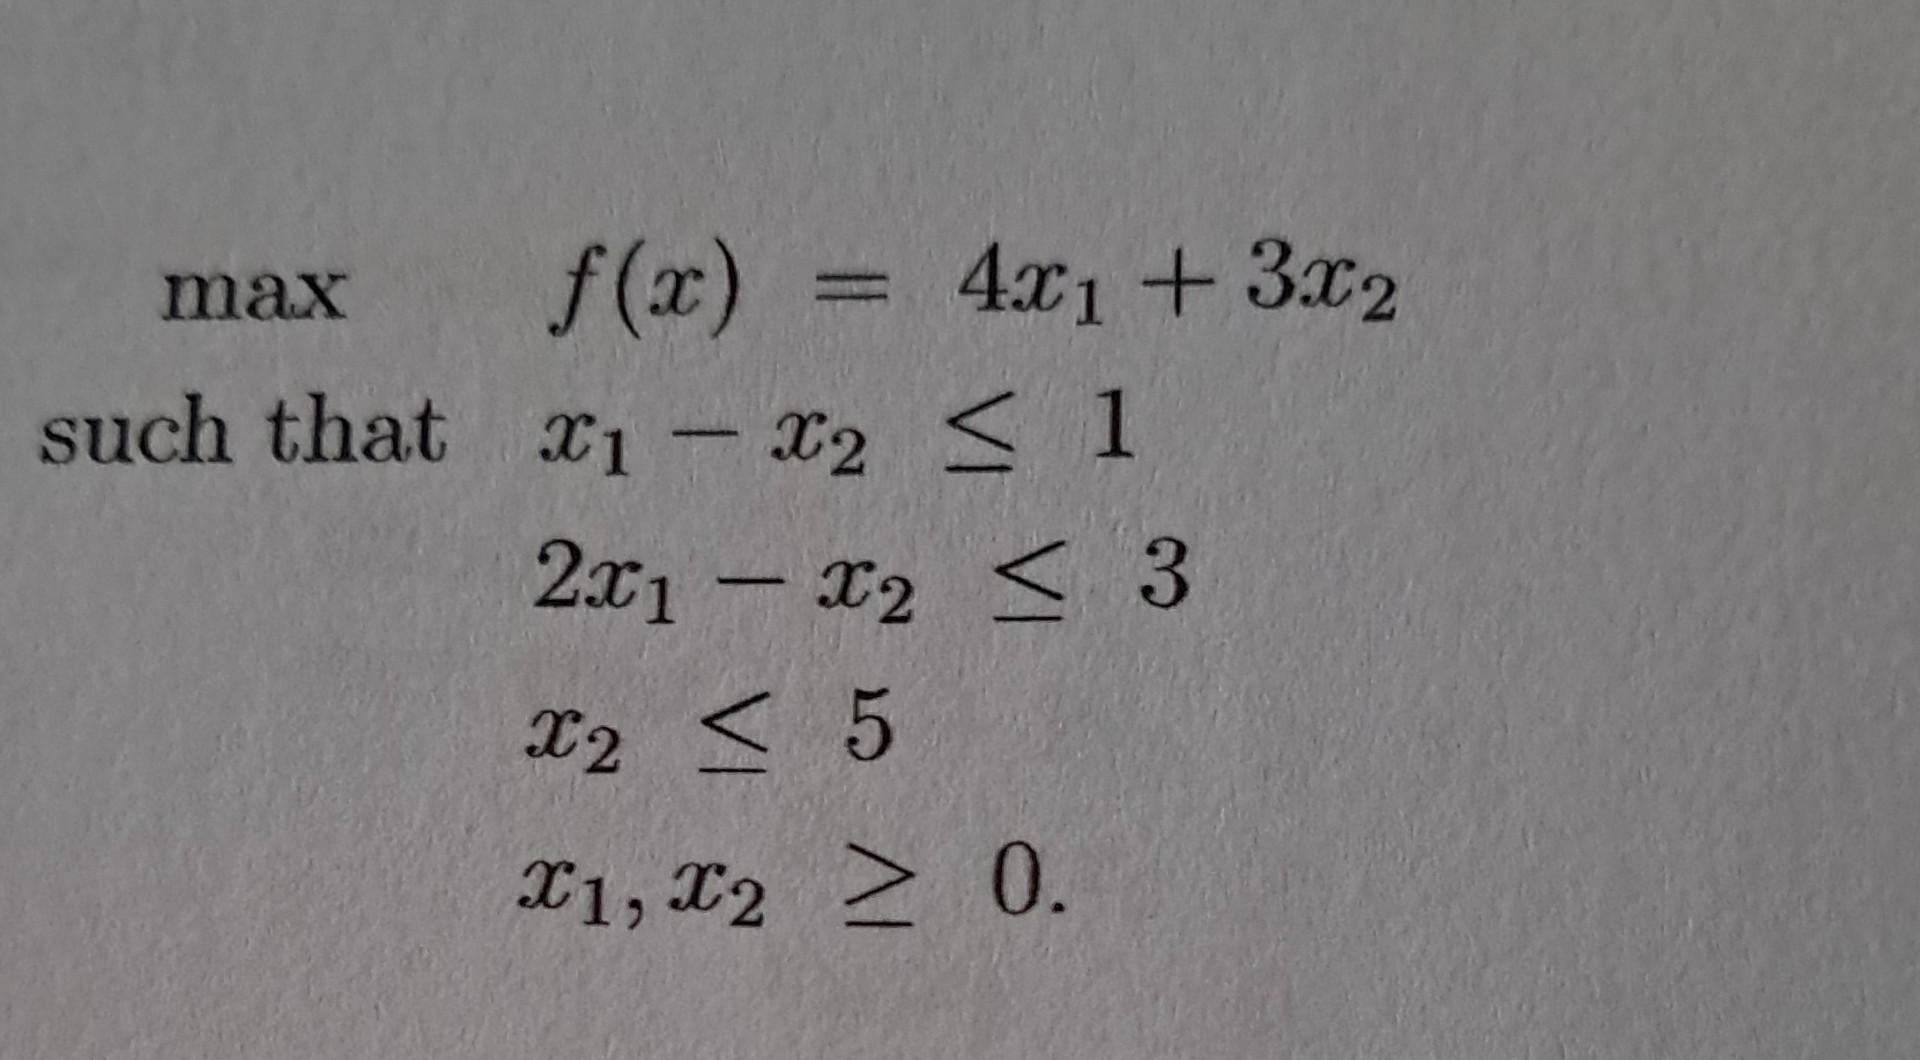 max f(x) = 4x₁ + 3x₂
such that x₁ − x₂ ≤ 1
2x₁ − x₂ ≤ 3
x₂ ≤ 5
x₁, x₂ ≥ 0.